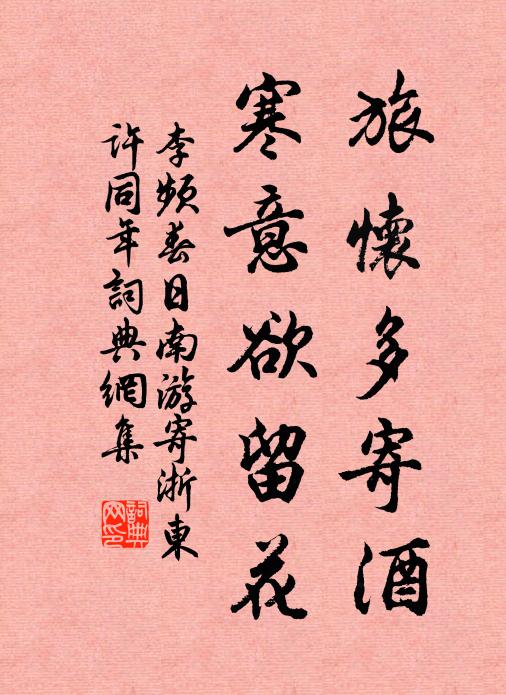 旅懷多寄酒
寒意欲留花
李頻春日南游寄浙東
許同年詞典網集
詞典網印